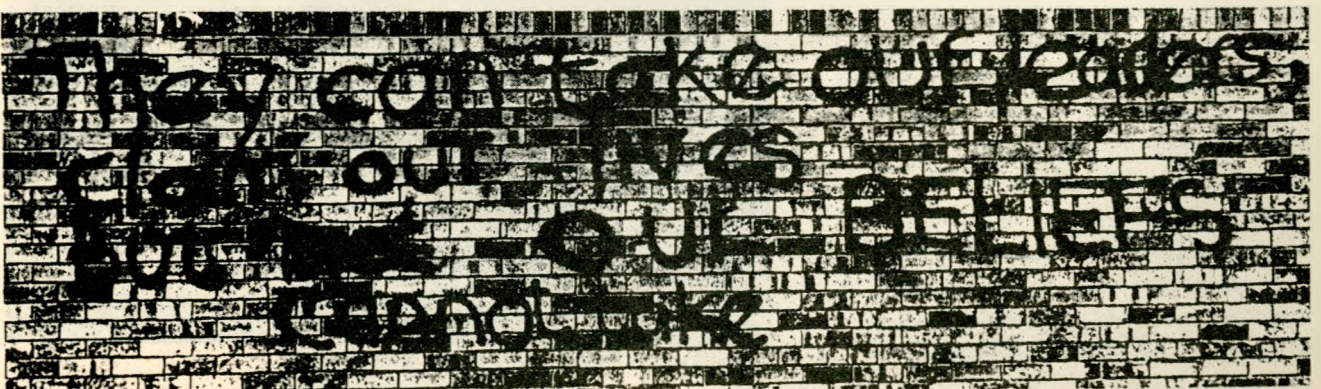 They can take our leaders,
claim our lives
But our BELIEFS
cannot take